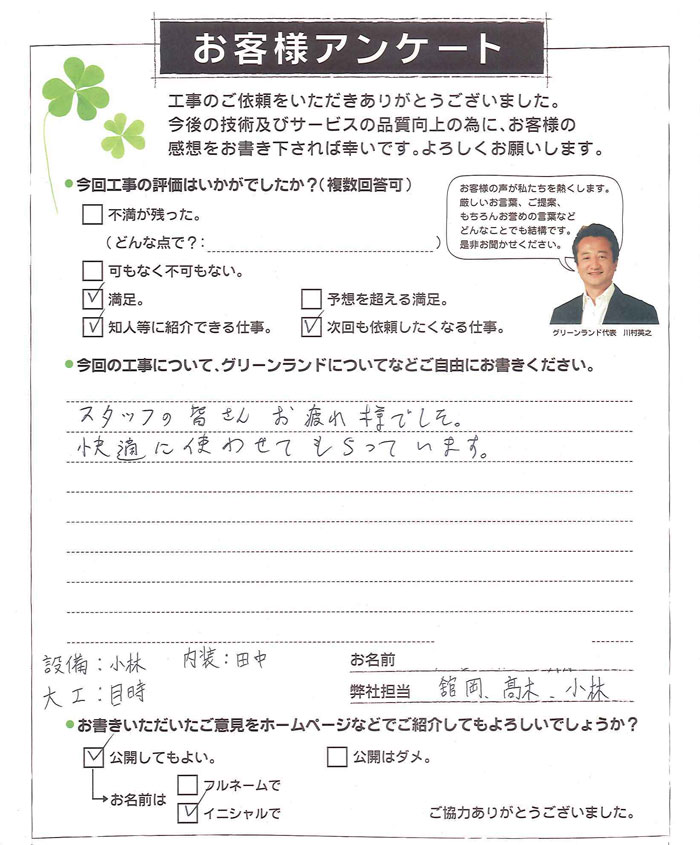 お客様アンケート
工事のご依頼をいただきありがとうございました。
今後の技術及びサービスの品質向上の為に、お客様の
感想をお書き下されば幸いです。よろしくお願いします。
●今回工事の評価はいかがでしたか？（複数回答可）
不満が残った。
（どんな点で？：　）
可もなく不可もない。
満足。　予想を超える満足。
知人等に紹介できる仕事。　次回も依頼したくなる仕事。
お客様の声が私たちを熱くします。
厳しいお言葉、ご提案、
もちろんお誉めの言葉など
どんなことでも結構です。
是非お聞かせください。
グリーンランド代表　川村英之
●今回の工事について、グリーンランドについてなどご自由にお書きください。
スタッフの皆さん お疲れ様でした。
快適に使わせてもらっています。
設備：小林　内装：田中
大工：目時
お名前
弊社担当　舘岡、髙木、小林
●お書きいただいたご意見をホームページなどでご紹介してもよろしいでしょうか？
公開してもよい。　公開はダメ。
お名前は　フルネームで
イニシャルで
ご協力ありがとうございました。